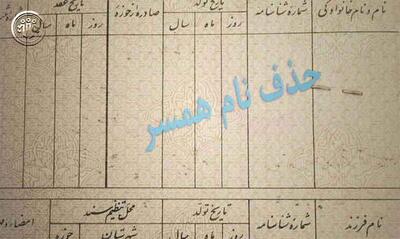 نام و نام خانوادگی شماره شناسنامه تاریخ تولد صادره از حوزه تاریخ عقد
روز ماه سال روز ماه سال
حذف نام همسر
نام فرزند شماره شناسنامه تاریخ تولد محل تنظیم سند
روز ماه سال شهرستان حوزه